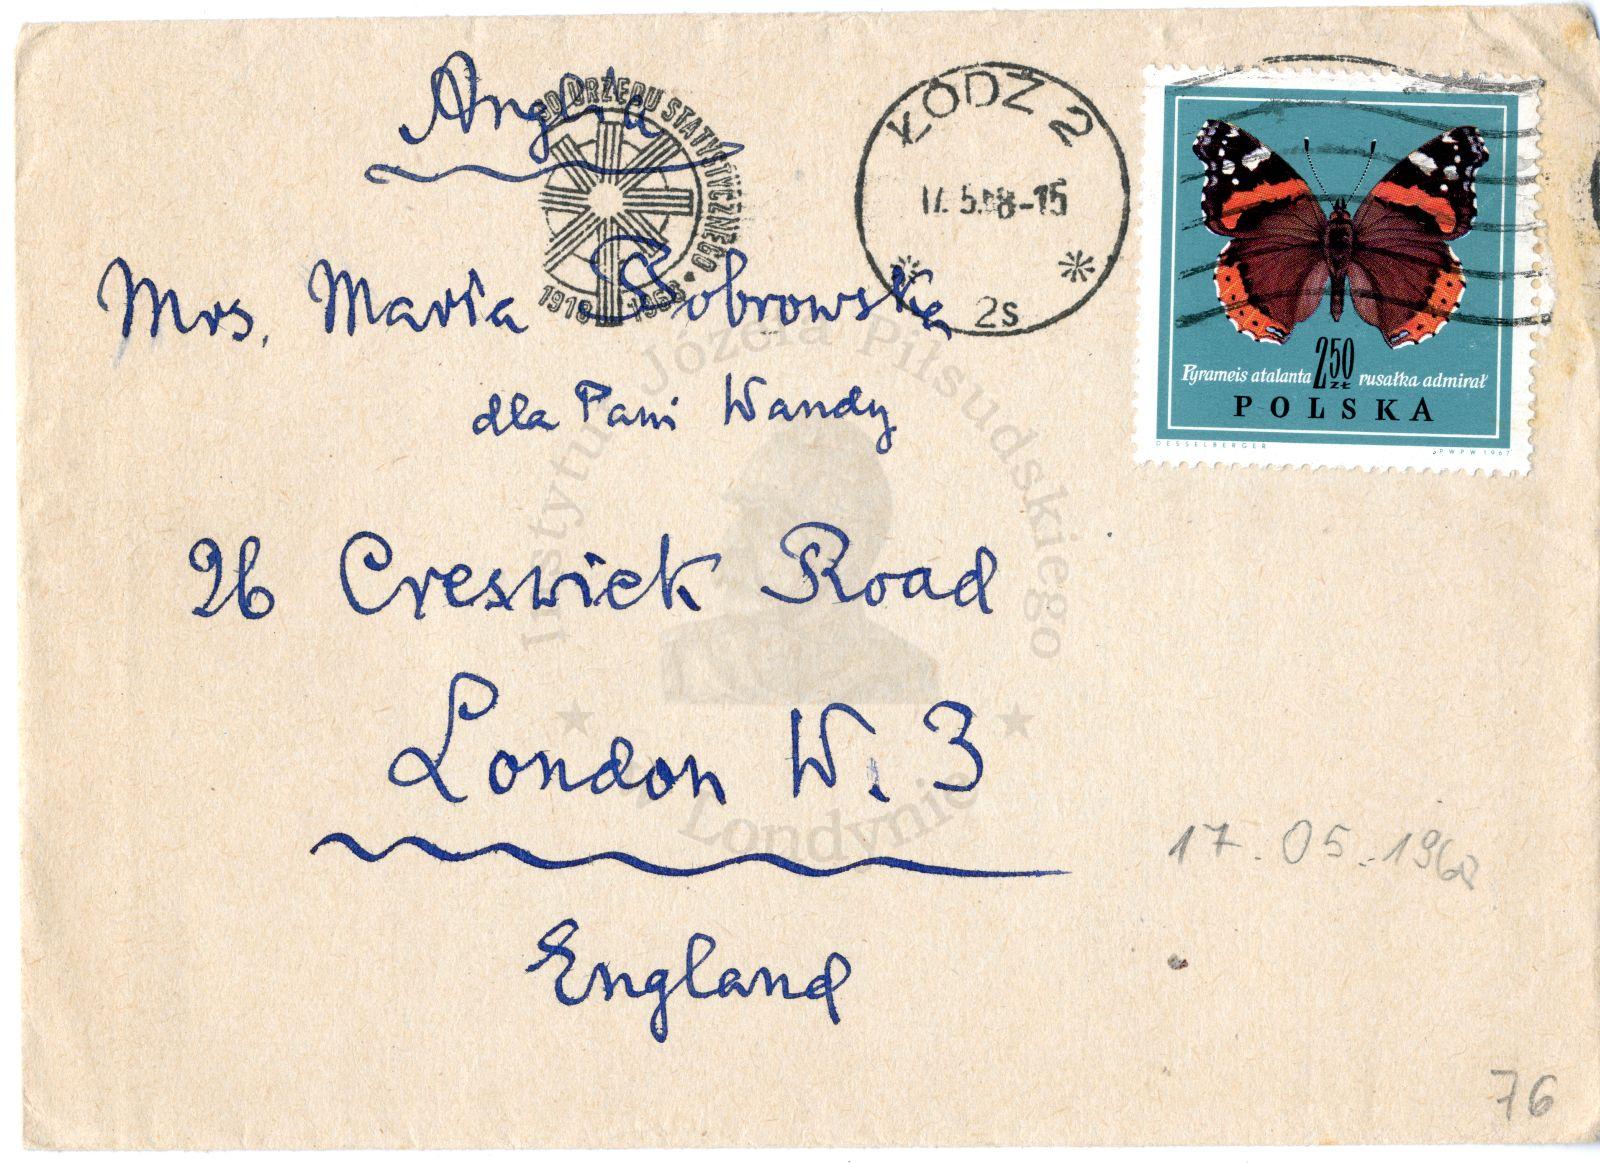 Anglia
50 L URZĘDU STATYSTYCZNEGO
1918 1968
ŁÓDŹ 2
17.5.68-15
2s
Pyrameis atalanta 2.50 ZŁ rusałka admirał
POLSKA
DESSELBERGER PWPW 1967
Mrs. Maria Bobrowska
dla Pani Wandy
26 Creswick Road
London W. 3
England
17.05.1968
76
Instytut Józefa Piłsudskiego
w Londynie